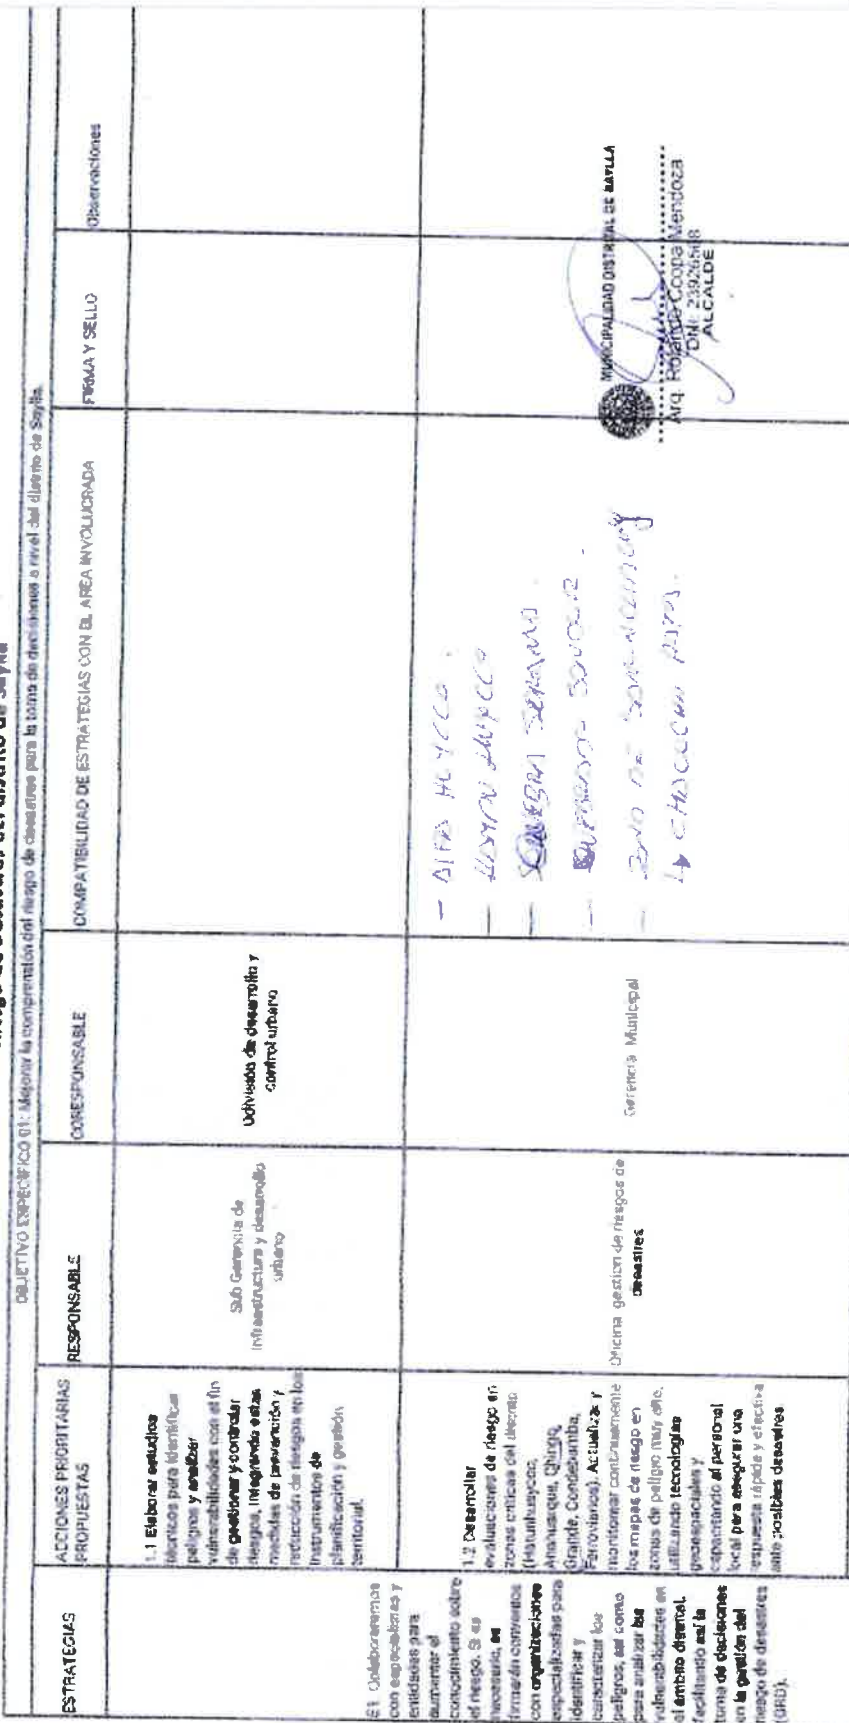 riesgo de desastres del distrito de Saylla
OBJETIVO ESPECIFICO 01: Mejorar la comprensión del riesgo de desastres para la toma de decisiones a nivel del distrito de Saylla.
ESTRATEGIAS
ACCIONES PRIORITARIAS
PROPUESTAS
RESPONSABLE
CORESPONSABLE
COMPATIBILIDAD DE ESTRATEGIAS CON EL AREA INVOLUCRADA
FIRMA Y SELLO
Observaciones
E1. Colaboraremos
con especialistas y
entidades para
aumentar el
conocimiento sobre
el riesgo. Si es
necesario, se
firmarán convenios
con organizaciones
especializadas para
identificar y
caracterizar los
peligros, así como
para analizar las
vulnerabilidades en
el ámbito distrital,
facilitando así la
toma de decisiones
en la gestión del
riesgo de desastres
(GRD).
1.1 Elaborar estudios
técnicos para identificar
peligros y analizar
vulnerabilidades con el fin
de gestionar y controlar
riesgos, integrando estas
medidas de prevención y
reducción de riesgos en los
instrumentos de
planificación y gestión
territorial.
Sub Gerencia de
Infraestructura y desarrollo
urbano
Udivisión de desarrollo y
control urbano
1.2 Desarrollar
evaluaciones de riesgo en
zonas criticas del distrito
(Hatunhuaycco,
Grande, Condebamba,
Ferroviarios). Actualizar y
monitorear continuamente
los mapas de riesgo en
zonas de peligro muy alto,
utilizando tecnologías
geoespaciales y
capacitando al personal
local para asegurar una
respuesta rápida y efectiva
ante posibles desastres.
Oficina gestion de riesgos de
desastres
Gerencia Municipal
- HUYCCO.
- HATUN HUYCCO
-
-
- ZONA DE
MUNICIPALIDAD DISTRITAL DE SAYLLA
Arq. Rolando Ccopa Mendoza
DNI: 23926568
ALCALDE